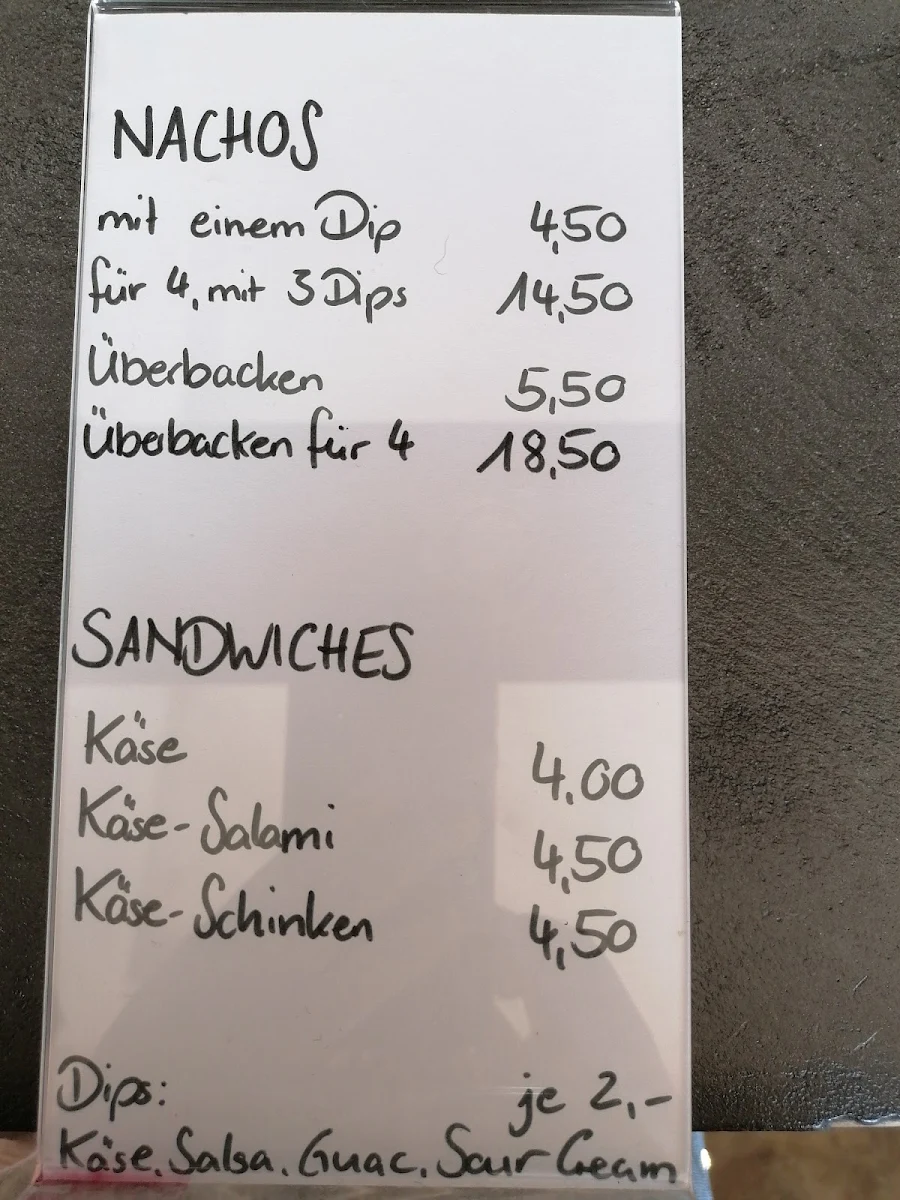 NACHOS
mit einem Dip 4,50
für 4, mit 3 Dips 14,50
Überbacken 5,50
Überbacken für 4 18,50
SANDWICHES
Käse 4.00
Käse-Salami 4,50
Käse-Schinken 4,50
Dips: je 2,-
Käse, Salsa, Guac, Sour Cream